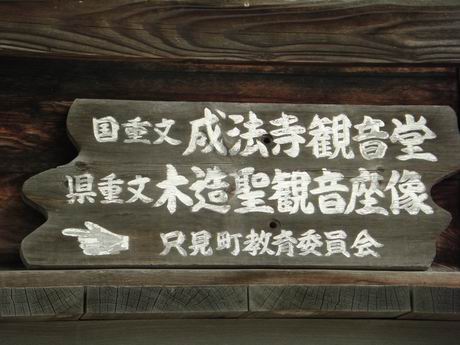 国重文 成法寺観音堂
県重文 木造聖観音座像
只見町教育委員会